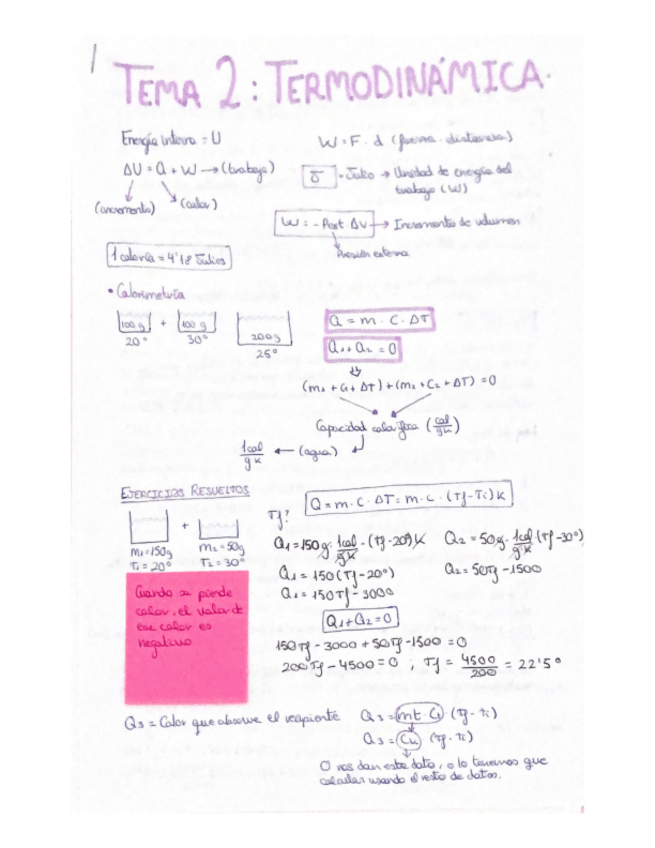 1
TEMA 2: TERMODINÁMICA.
Energía interna = U
ΔU = Q + W → (trabajo)
(incremento) (calor)
W = F · d (fuerza · distancia)
J = Julio → Unidad de energía del
trabajo (W)
W = - Pext · ΔV → Incremento de volumen
Presión externa
1 caloría = 4'18 Julios
• Calorimetría
100 g + 100 g 200g
20° 30° 25°
Q = m · C · ΔT
Q1 + Q2 = 0
(m1 + C1 + ΔT) + (m2 + C2 + ΔT) = 0
Capacidad calorífica (cal/gK)
1cal/gK ← (agua)
EJERCICIOS RESUELTOS
Q = m · C · ΔT = m · C · (Tf - Ti) K
+
m1 = 150g m2 = 50g
T1 = 20° T2 = 30°
Tf?
Q1 = 150g · 1cal/gK · (Tf - 20°) K
Q1 = 150 (Tf - 20°)
Q1 = 150Tf - 3000
Q2 = 50g · 1cal/gK · (Tf - 30°)
Q2 = 50Tf - 1500
Q1 + Q2 = 0
150Tf - 3000 + 50Tf - 1500 = 0
200Tf - 4500 = 0 ; Tf = 4500/200 = 22'5°
Cuando se pierde
calor, el valor de
ese calor es
negativo
Q3 = Calor que absorve el recipiente
Q3 = mt · C1 · (Tf - Ti)
Q3 = Ck (Tf - Ti)
O nos dan este dato, o lo tenemos que
calcular usando el resto de datos.